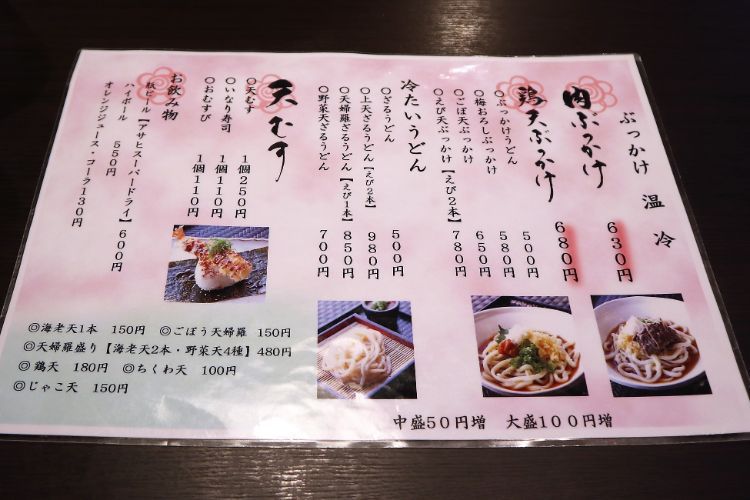 ぶっかけ 温 冷
肉ぶっかけ 630円
鶏天ぶっかけ 680円
○ぶっかけうどん 500円
○梅おろしぶっかけ 580円
○ごぼ天ぶっかけ 650円
○えび天ぶっかけ【えび2本】 780円
冷たいうどん
○ざるうどん 500円
○上天ざるうどん【えび2本】 980円
○天婦羅ざるうどん【えび1本】 850円
○野菜天ざるうどん 700円
天むす
○天むす 1個250円
○いなり寿司 1個110円
○おむすび 1個110円
お飲み物
瓶ビール【アサヒスーパードライ】600円
ハイボール 550円
オレンジジュース・コーラ130円
◎海老天1本 150円 ◎ごぼう天婦羅 150円
◎天婦羅盛り【海老天2本・野菜天4種】480円
◎鶏天 180円 ◎ちくわ天 100円
◎じゃこ天 150円
中盛50円増 大盛100円増